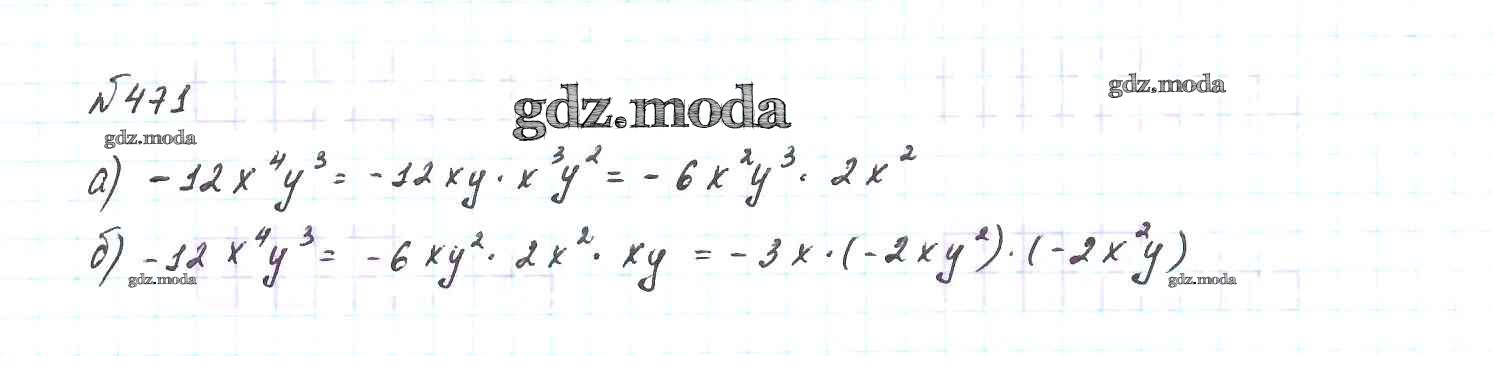 №471
gdz.moda
gdz.moda
gdz.moda
а) -12x⁴y³ = -12xy · x³y² = -6x²y³ · 2x²
б) -12x⁴y³ = -6xy² · 2x² · xy = -3x · (-2xy²) · (-2x²y)
gdz.moda
gdz.moda